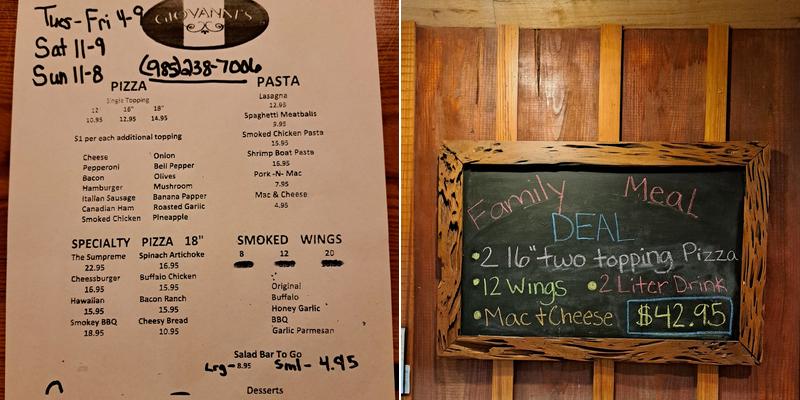 Tues-Fri 4-9
Sat 11-9
Sun 11-8
GIOVANNI'S
(985)238-7006
PIZZA
Single Topping
12" 16" 18"
10.95 12.95 14.95
$1 per each additional topping
Cheese Onion
Pepperoni Bell Pepper
Bacon Olives
Hamburger Mushroom
Italian Sausage Banana Papper
Canadian Ham Roasted Garlic
Smoked Chicken Pineapple
PASTA
Lasagna
12.95
Spaghetti Meatballs
9.95
Smoked Chicken Pasta
15.95
Shrimp Boat Pasta
16.95
Pork -N- Mac
7.95
Mac & Cheese
4.95
SPECIALTY PIZZA 18"
The Sumpreme Spinach Artichoke
22.95 16.95
Cheessburger Buffalo Chicken
16.95 15.95
Hawaiian Bacon Ranch
15.95 15.95
Smokey BBQ Cheesy Bread
18.95 10.95
SMOKED WINGS
8 12 20
Original
Buffalo
Honey Garlic
BBQ
Garlic Parmesan
Salad Bar To Go
Lrg- 8.95 Sml- 4.95
Desserts
Family Meal
DEAL
•2 16" two topping Pizza
•12 Wings •2 Liter Drink
•Mac & Cheese $42.95